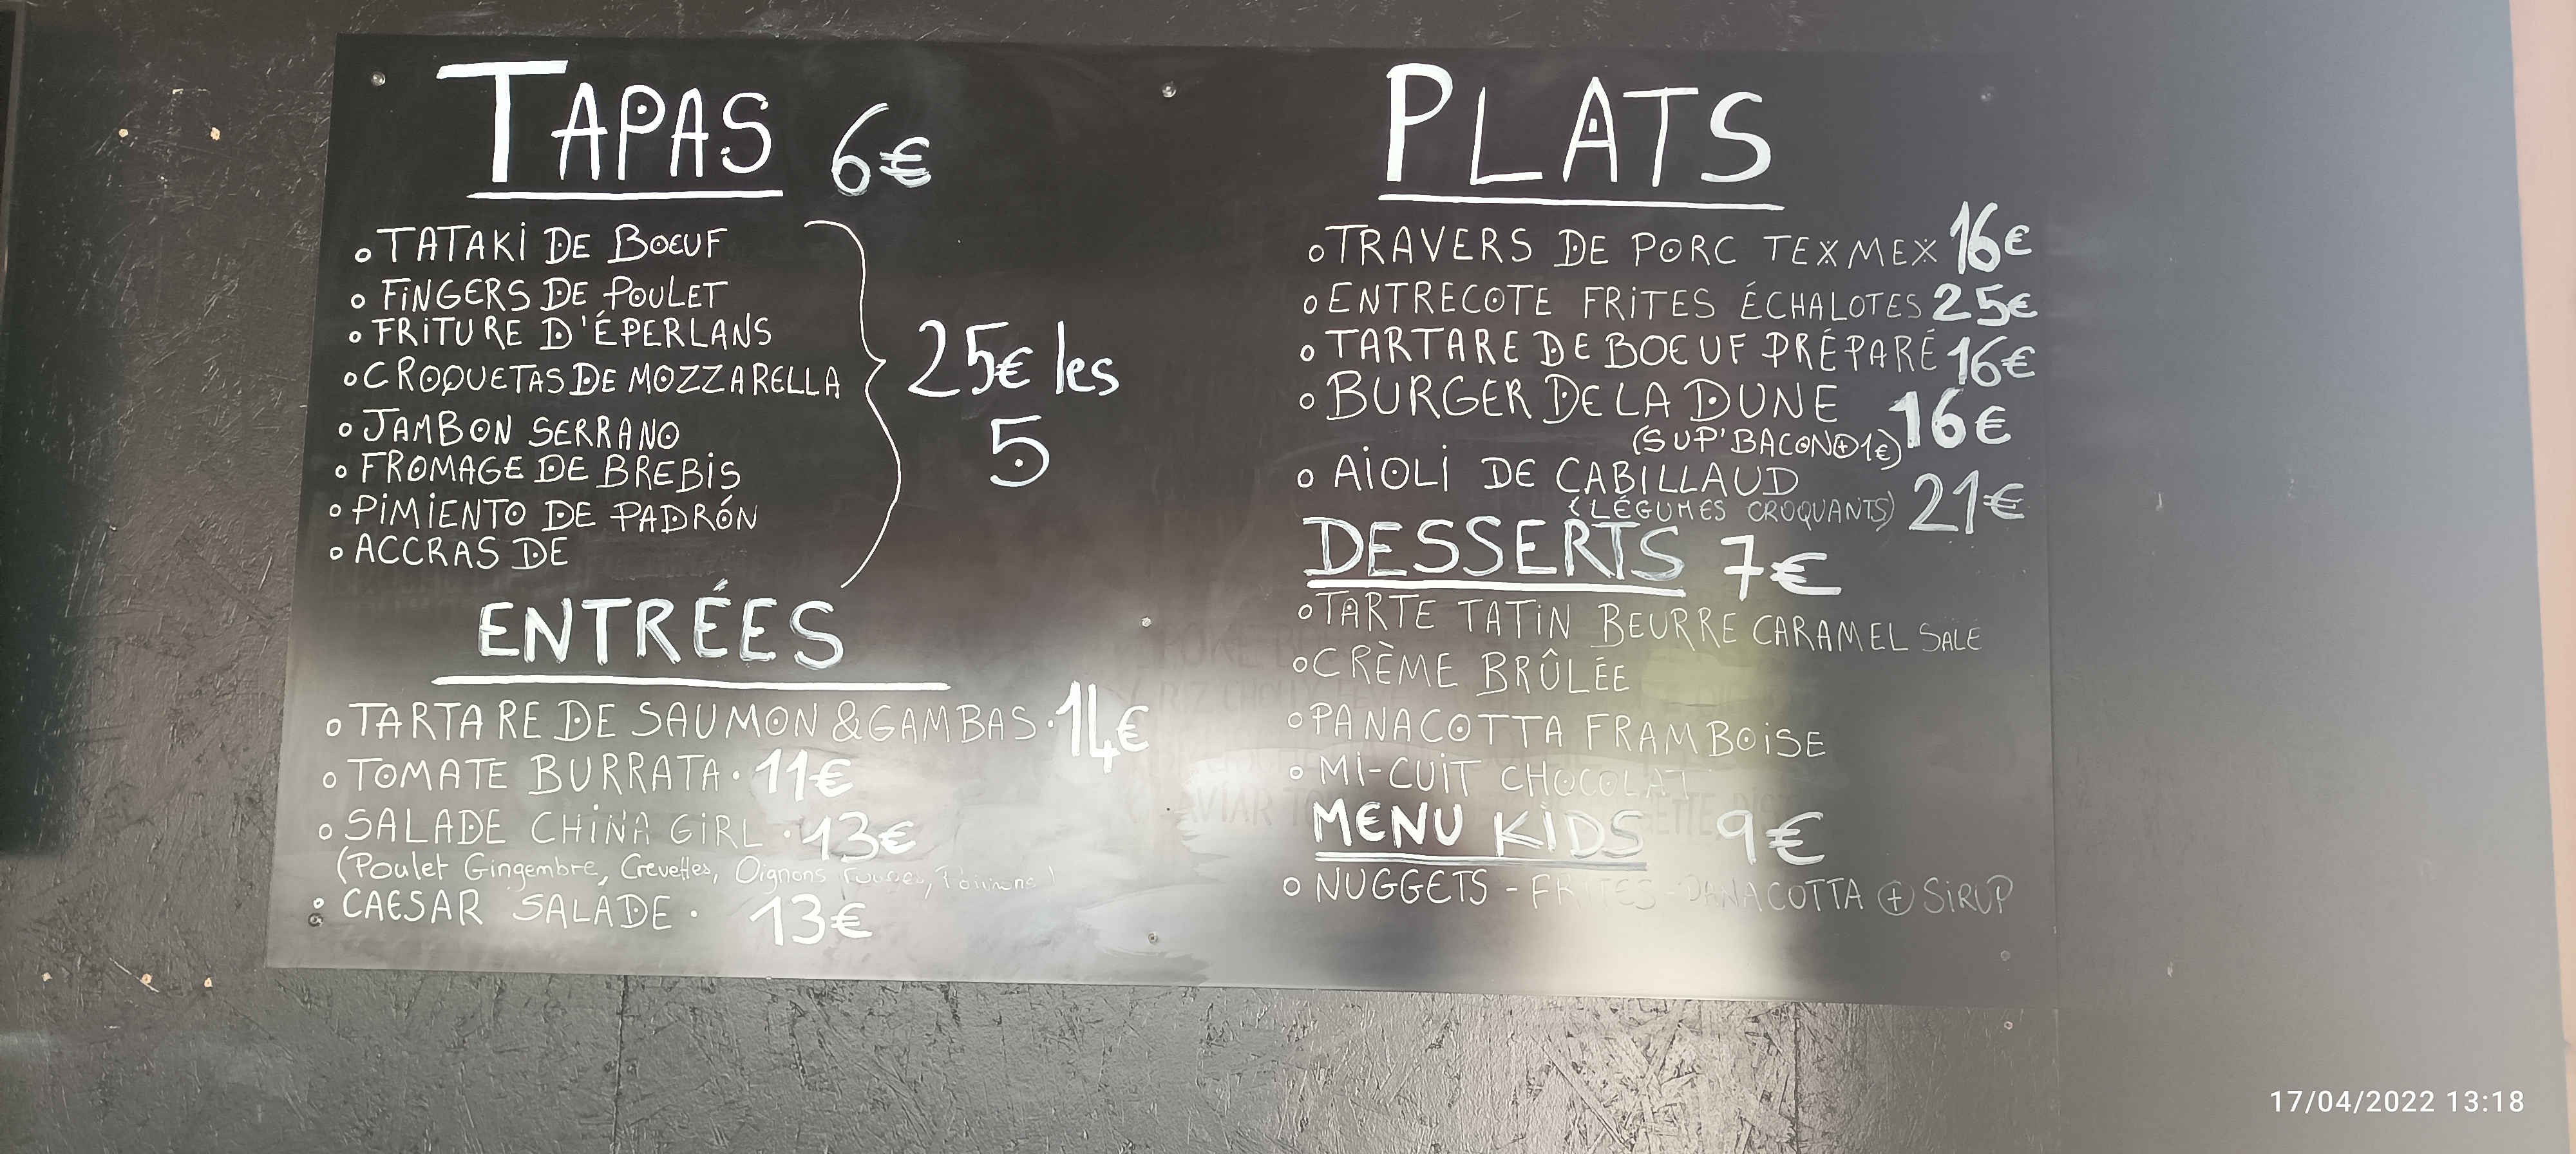 TAPAS 6€
TATAKI DE BOEUF
FINGERS DE POULET
FRITURE D'ÉPERLANS
CROQUETAS DE MOZZARELLA
JAMBON SERRANO
FROMAGE DE BREBIS
PIMIENTO DE PADRÓN
ACCRAS DE
25€ les
5
ENTRÉES
TARTARE DE SAUMON & GAMBAS · 14€
TOMATE BURRATA · 11€
SALADE CHINA GIRL · 13€
(Poulet Gingembre, Crevettes, Oignons
CAESAR SALADE · 13€
PLATS
TRAVERS DE PORC TEXMEX 16€
ENTRECOTE FRITES ÉCHALOTES 25€
TARTARE DE BOEUF PRÉPARÉ 16€
BURGER DE LA DUNE 16€
(SUP'BACON + 1€)
AIOLI DE CABILLAUD 21€
(LÉGUMES CROQUANTS)
DESSERTS 7€
TARTE TATIN BEURRE CARAMEL SALE
CRÈME BRÛLÉE
PANACOTTA FRAMBOISE
MI-CUIT CHOCOLAT
MENU KIDS 9€
NUGGETS - FRITES - PANACOTTA + SIRUP
17/04/2022 13:18